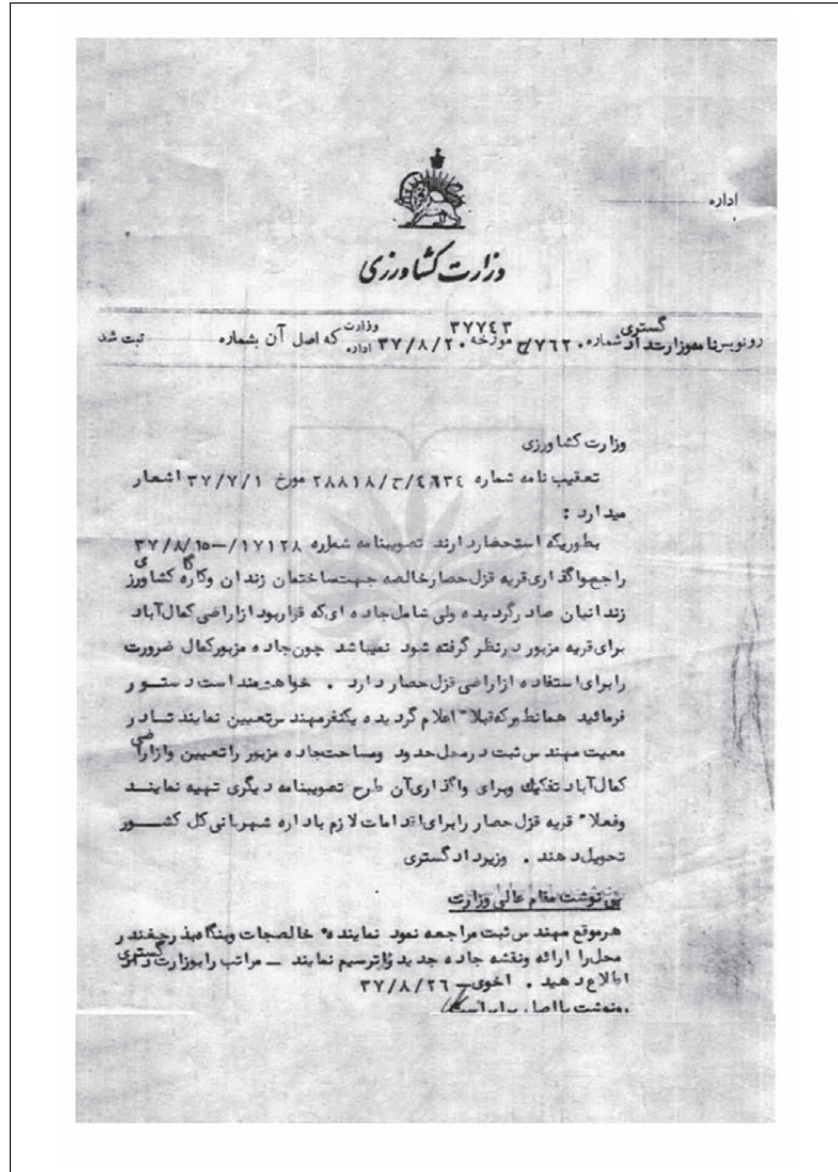 اداره
وزارت کشاورزی
رونویس نامه وزارت دادگستری شماره ۷۶۲۰/ح ۳۷۷۴۳ مورخه ۳۷/۸/۲۰ وزارت اداره که اصل آن بشماره ثبت شد
وزارت کشاورزی
تعقیب نامه شماره ۲۸۸۱۸/ح/۴۶۳۴ مورخ ۳۷/۷/۱ اشعار
میدارد :
بطوریکه استحضار دارند تصویبنامه شماره ۱۷۱۲۸/-۳۷/۸/۱۵
راجع بواگذاری قریه قزل حصار خالصه جهت ساختمان زندان و کارگاه کشاورزی
زندانیان صادر گردیده ولی شامل جاده ای که قرار بود از اراضی کمال آباد
برای قریه مزبور در نظر گرفته شود نمیباشد چون جاده مزبور کمال ضرورت
را برای استفاده از اراضی قزل حصار دارد . خواهشمند است دستور
فرمائید همانطور که قبلا" اعلام گردیده یکنفر مهندس تعیین نمایند تا در
معیت مهندس ثبت در محل حدود و مساحت جاده مزبور را تعیین و از اراضی
کمال آباد تفکیک و برای واگذاری آن طرح تصویبنامه دیگری تهیه نمایند
و فعلا" قریه قزل حصار را برای اقدامات لازم باداره شهربانی کل کشور
تحویل دهند . وزیر دادگستری
پی نوشت مقام عالی وزارت
هر موقع مهندس ثبت مراجعه نمود نماینده خالصجات و بنگاه بذر چغندر
محل را ارائه و نقشه جاده جدید را ترسیم نمایند - مراتب را بوزارت دادگستری
اطلاع دهید . اخوی - ۳۷/۸/۲۶
رونوشت با اصل برابر است